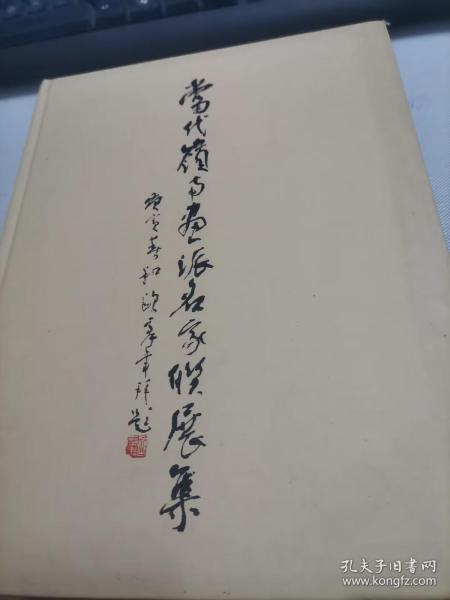 當代嶺南畫派名家聯展集
庚寅春初歐豪年拜題
孔夫子旧书网
www.kongfz.com